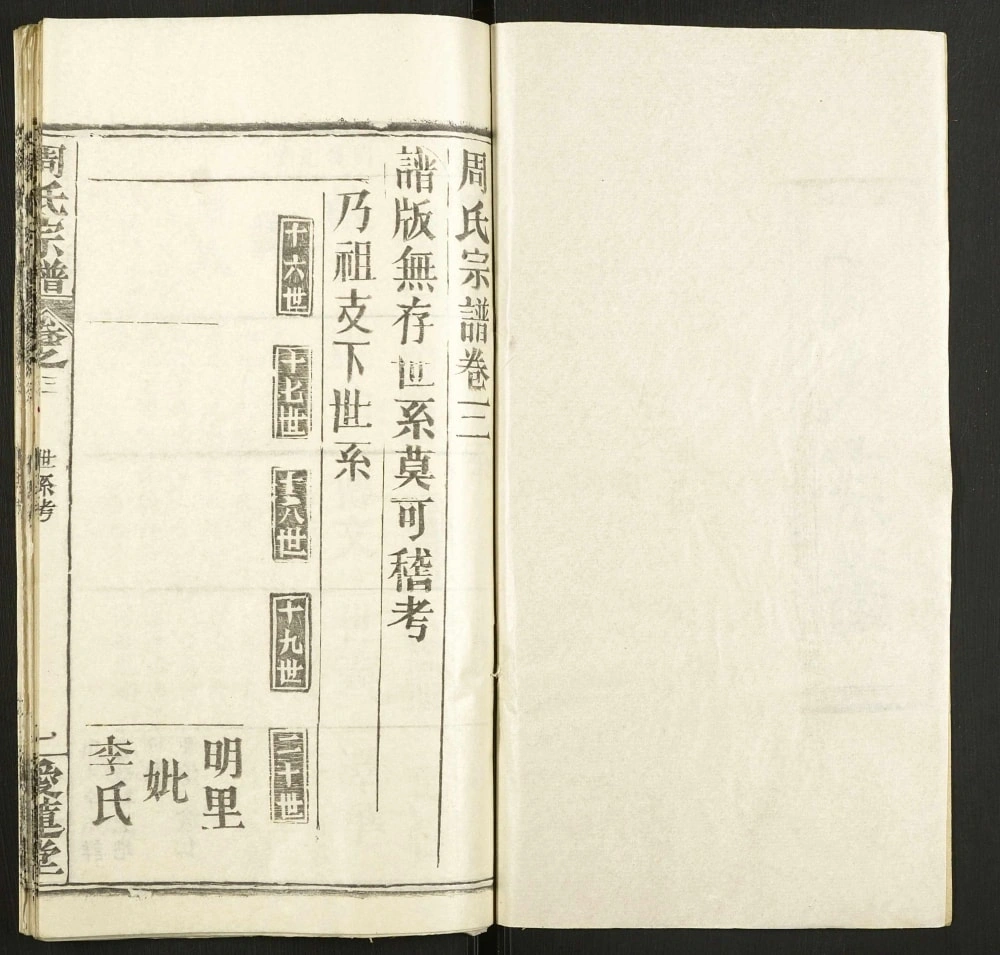 周氏宗譜卷三
譜版無存世系莫可稽考
乃祖支下世系
十六世
十七世
十八世
十九世
二十世
明里
妣
李氏
周氏宗譜
卷之三
世系考
一
愛蓮堂